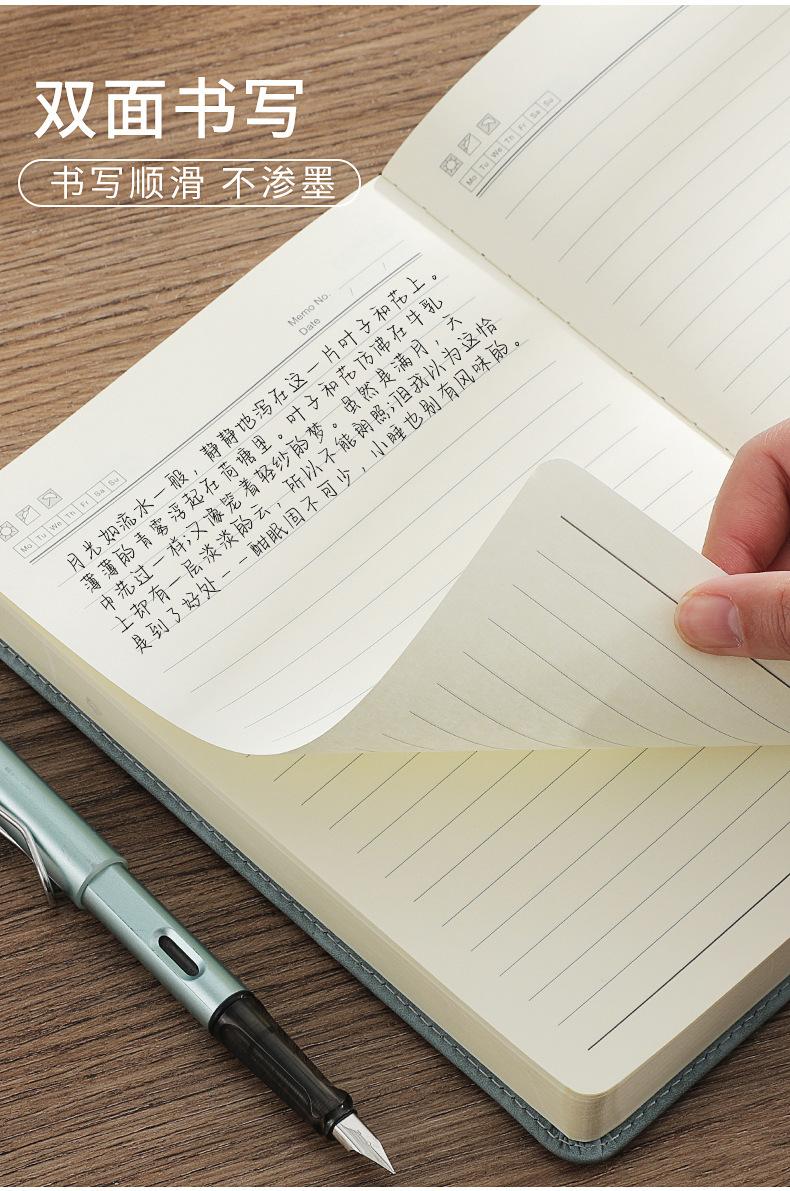 双面书写
书写顺滑 不渗墨
Mo Tu We Th Fr Sa Su
Memo No.
Date / /
Mo Tu We Th Fr Sa Su
月光如流水一般，静静地泻在这一片叶子和花上。
薄薄的青雾浮起在荷塘里。叶子和花仿佛在牛乳
中洗过一样;又像笼着轻纱的梦。虽然是满月，天
上却有一层淡淡的云，所以不能朗照;但我以为这恰
是到了好处--酣眠固不可少，小睡也别有风味的。